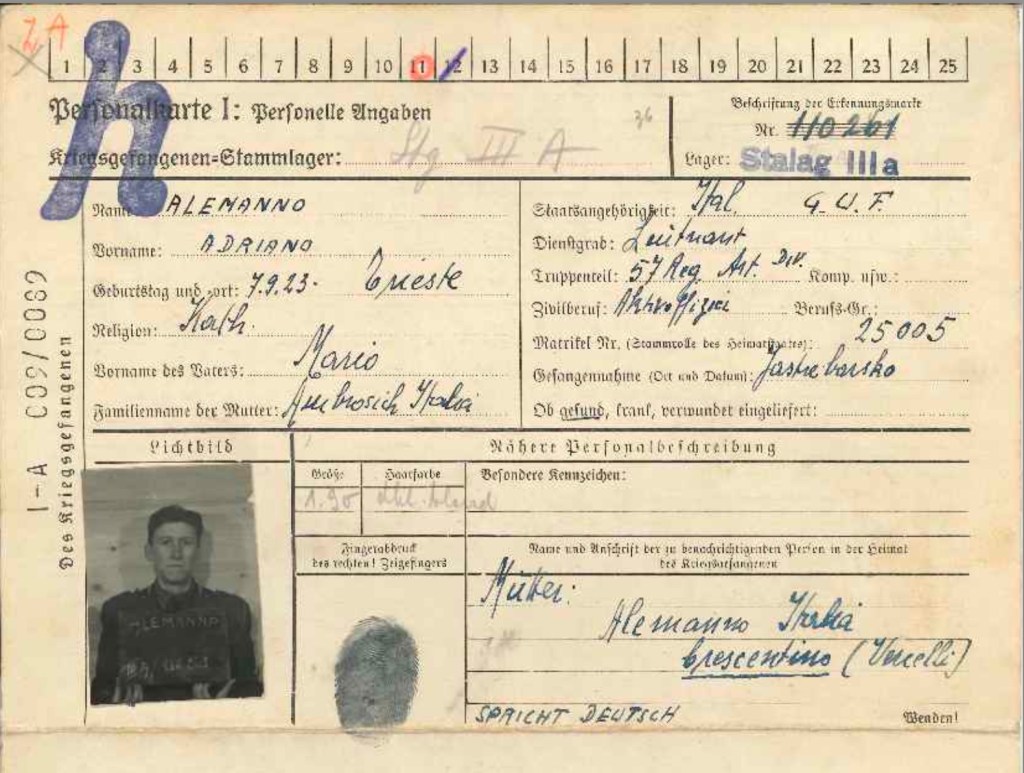 ZA
1 2 3 4 5 6 7 8 9 10 11 12 13 14 15 16 17 18 19 20 21 22 23 24 25
Personalkarte I: Personelle Angaben
36
Beschriftung der Erkennungsmarke
Nr. 110261
Kriegsgefangenen-Stammlager: Stg III A
Lager: Stalag IIIa
h
Name: ALEMANNO
Vorname: ADRIANO
Geburtstag und -ort: 7.9.23. Trieste
Religion: Kath.
Vorname des Vaters: Mario
Familienname der Mutter: Ambrosich Italia
Staatsangehörigkeit: Ital. G.U.F.
Dienstgrad: Leutnant
Truppenteil: 57 Reg. Art. Div. Komp. usw.:
Zivilberuf: Aktivoffizier Berufs-Gr.:
Matrikel Nr. (Stammrolle des Heimatstaates): 25005
Gefangennahme (Ort und Datum): Jastrebarsko
Ob gesund, krank, verwundet eingeliefert:
1-A 009/0089
Des Kriegsgefangenen
Lichtbild
Nähere Personalbeschreibung
Größe Haarfarbe
1.90 dkl. blond
Besondere Kennzeichen:
Fingerabdruck
des rechten! Zeigefingers
Name und Anschrift der zu benachrichtigenden Person in der Heimat
des Kriegsgefangenen
Mutter:
Alemanno Italia
Crescentino (Vercelli)
ALEMANNO
SPRICHT DEUTSCH
Wenden!